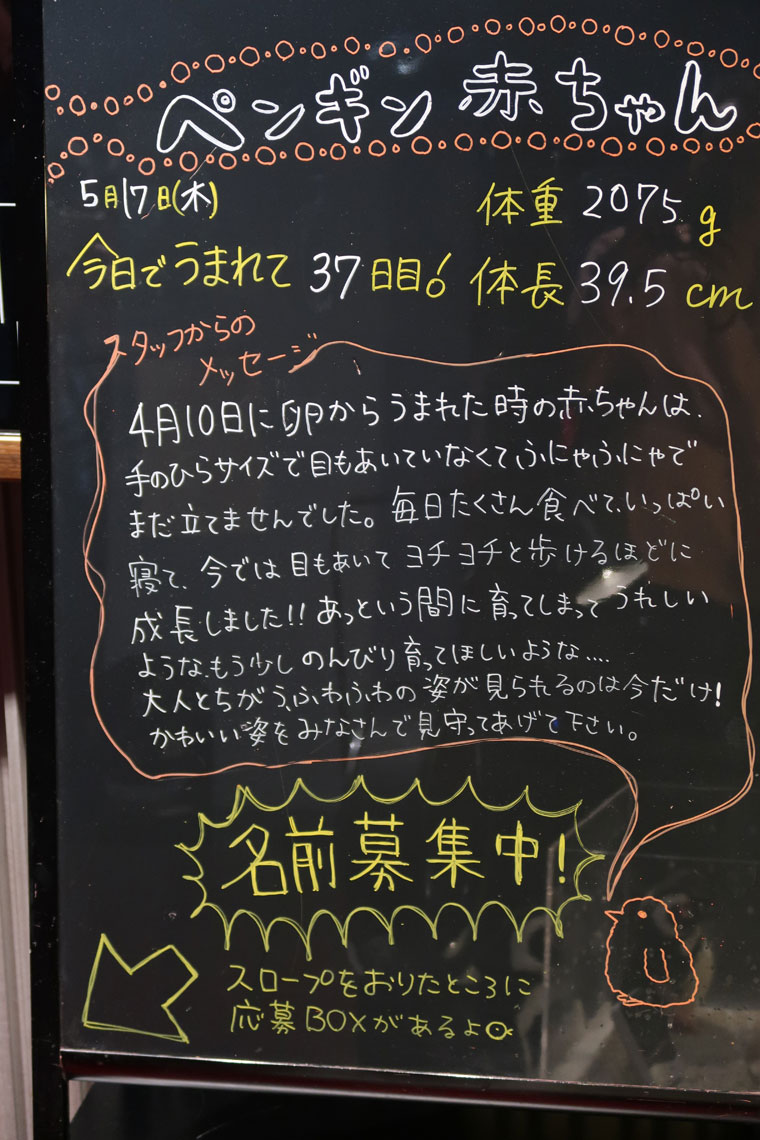 ペンギン 赤ちゃん
5月17日(木)
体重 2075g
今日でうまれて 37日目!
体長 39.5cm
スタッフからの
メッセージ
4月10日に卵からうまれた時の赤ちゃんは、
手のひらサイズで目もあいていなくて、ふにゃふにゃで
まだ立てませんでした。毎日たくさん食べて、いっぱい
寝て、今では目もあいてヨチヨチと歩けるほどに
成長しました!!あっという間に育ってしまってうれしい
ような、もう少しのんびり育ってほしいような....
大人とちがう、ふわふわの姿が見られるのは今だけ!
かわいい姿をみなさんで見守ってあげて下さい。
名前募集中!
スロープをおりたところに
応募BOXがあるよ